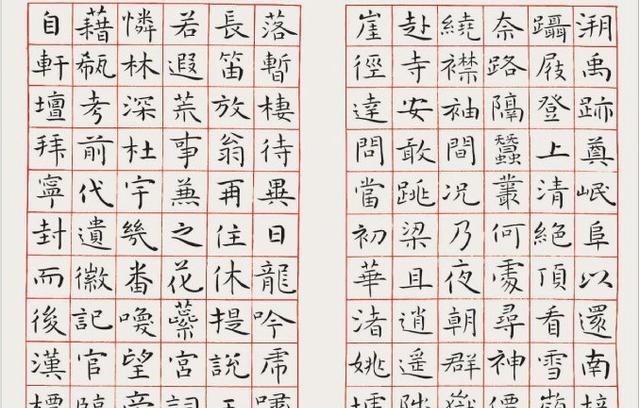 溯禹跡奠岷阜以還南培
躡屐登上清絕頂看雪嶺
奈路隔蠶叢何處尋神僊
繞襟袖間況乃夜朝群嶽
赴寺安敢跳梁且逍遙陟
崖徑達問當初華渚姚墟
落暫棲待異日龍吟虎嘯
長笛放翁再住休提說王
若遐荒事兼之花蘂宮詞
憐林深杜宇幾番喚望帝
藉瓻考前代遺徽記官臨
自軒壇拜寧封而後漢標